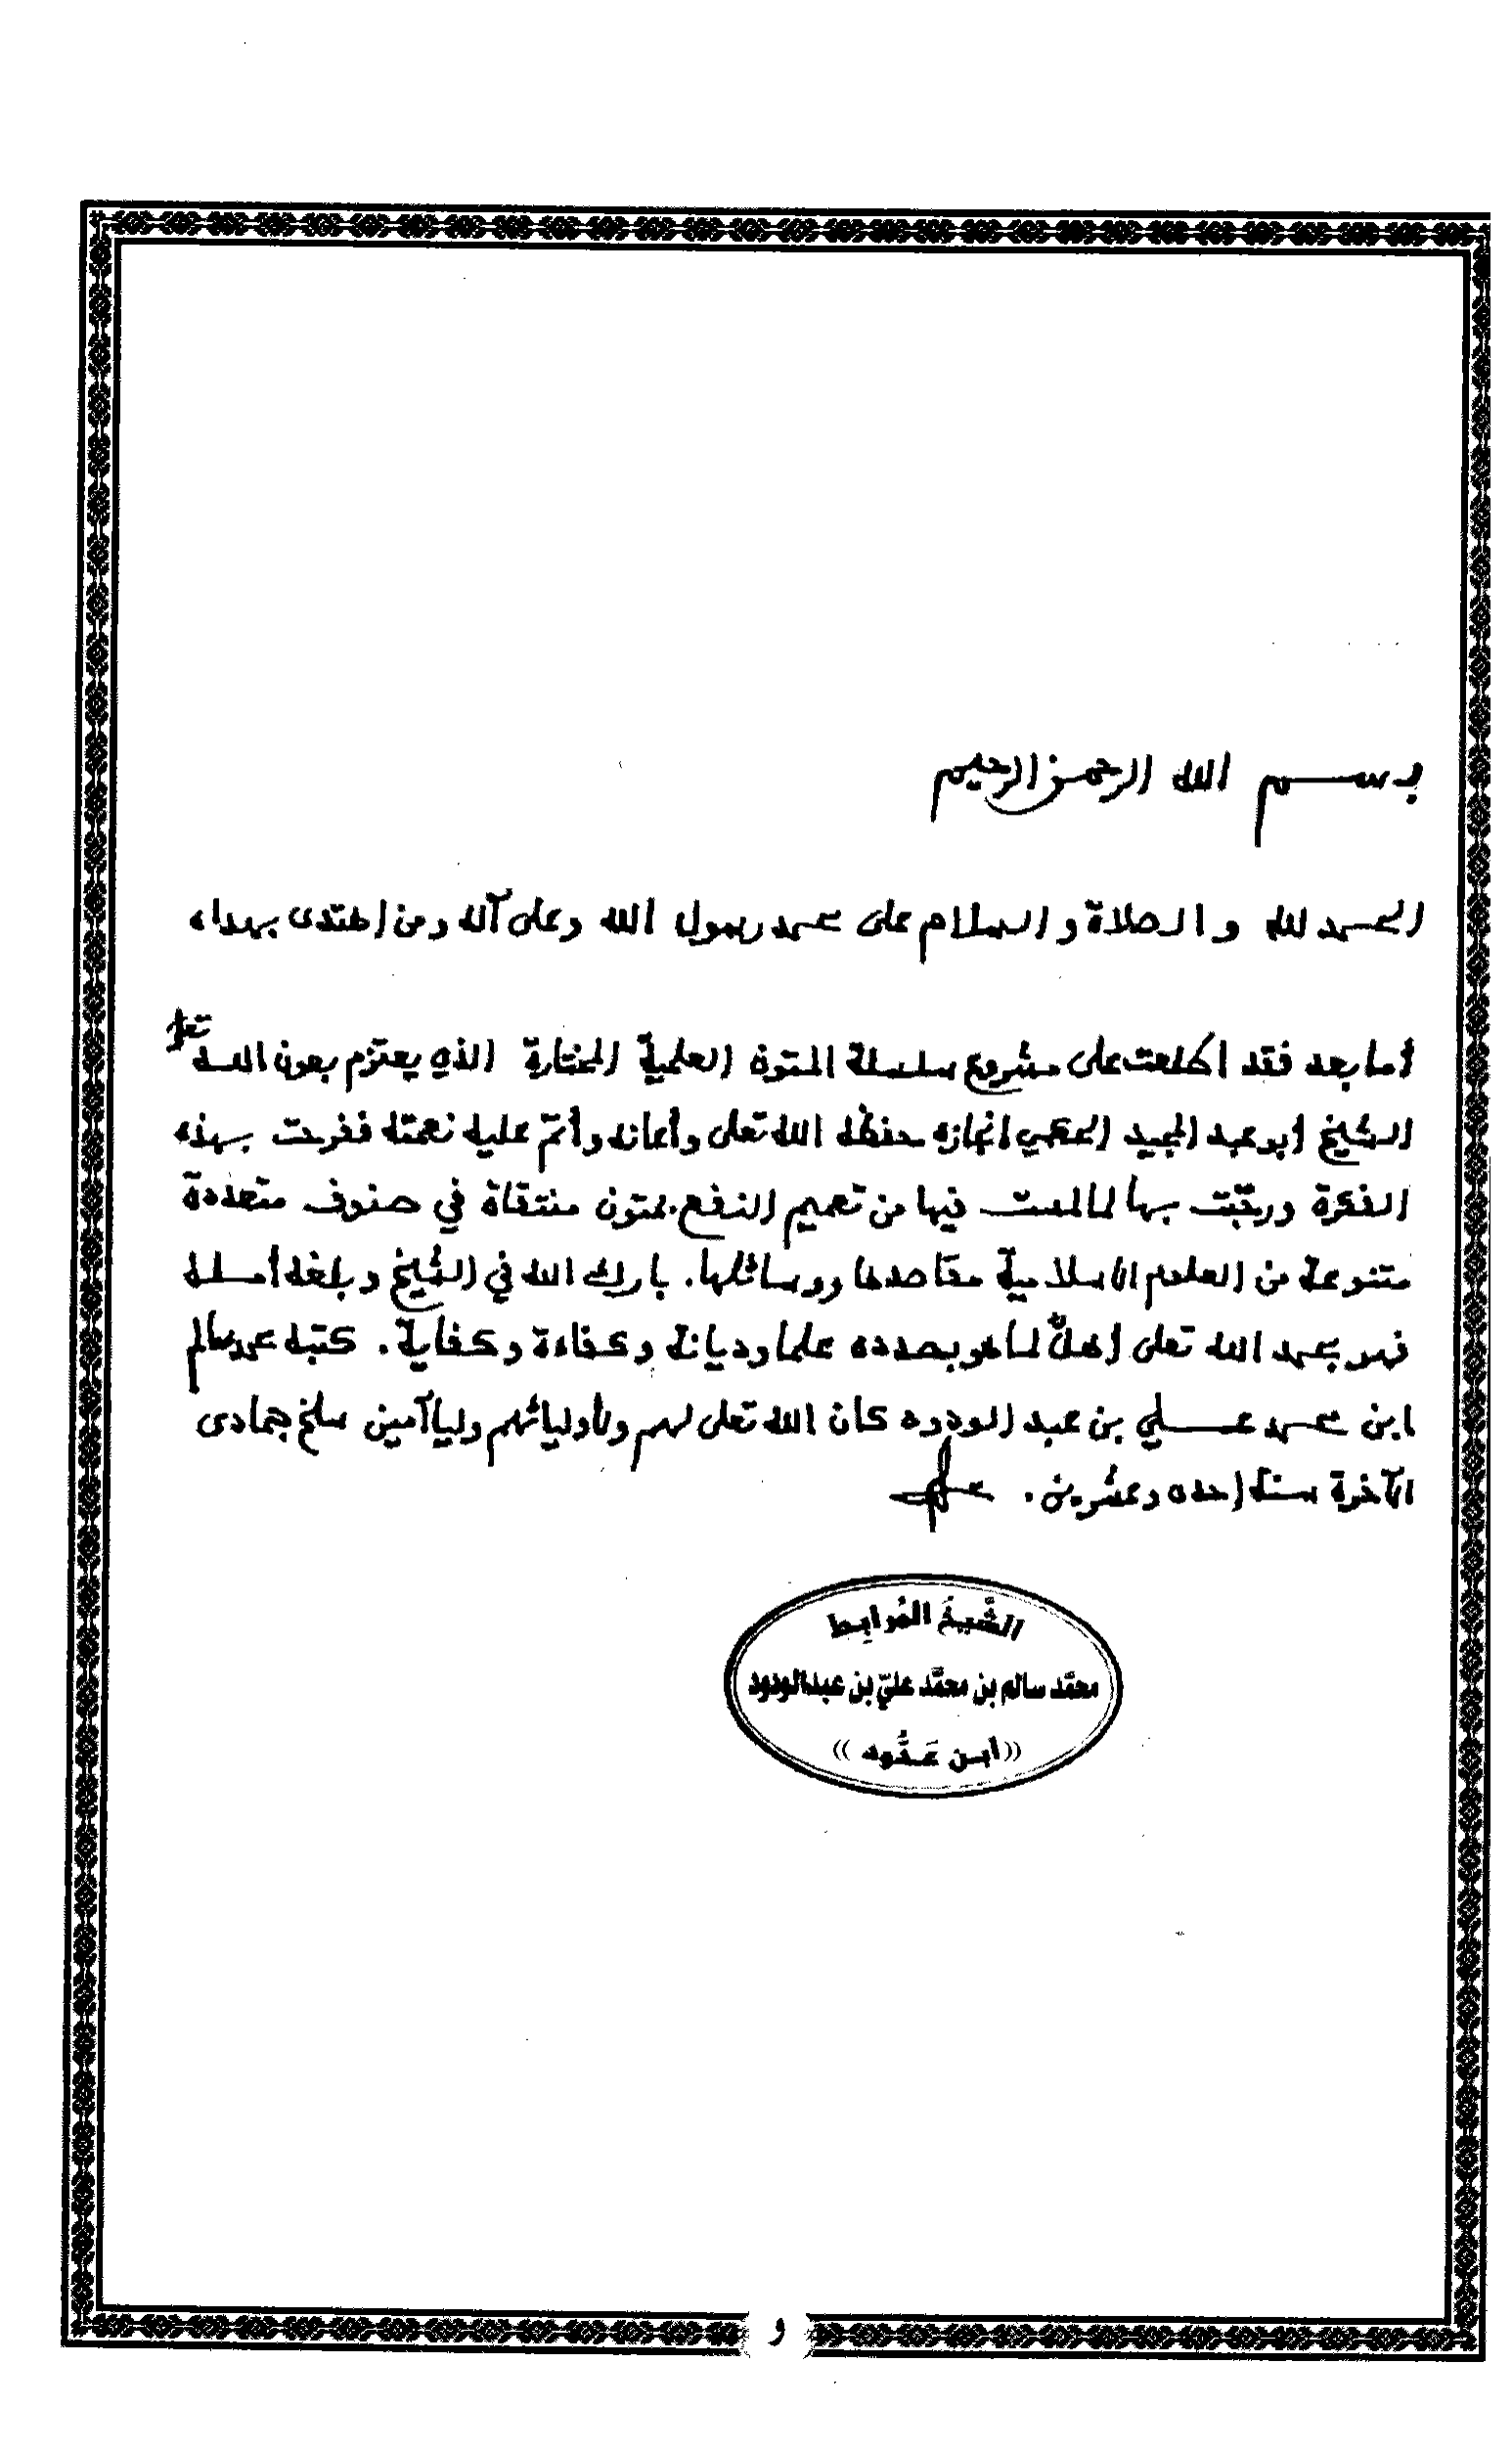 بسم الله الرحمن الرحيم
الحمد لله والصلاة والسلام على محمد رسول الله وعلى آله ومن اهتدى بهداه
أما بعد فقد اطلعت على مشروع سلسلة المتون العلمية المختارة الذي يعتزم بعون الله تعلى
الشيخ أبو عبد المجيد انجازه حفظه الله تعلى وأعانه وأتم عليه نعمته ففرحت بهذه
الفكرة ورحبت بها لما لمست فيها من تعميم النفع بمتون منتقاة في صنوف متعددة
متنوعة من العلوم الاسلامية مقاصدها ووسائلها. بارك الله في الشيخ وبلغه أمله
فهو بحمد الله تعلى أهلٌ لما هو بصدده علما وديانة وكفاءة وكفاية. كتبه محمد سالم
ابن محمد علي بن عبد الودود كان الله تعلى لهم ولأوليائهم وليا آمين سلخ جمادى
الآخرة سنة إحدى وعشرين.
الشَّيخ المُرابِط
محمَّد سالم بن محمَّد عليّ بن عبدالودود
((ابن عَدُّود))
و